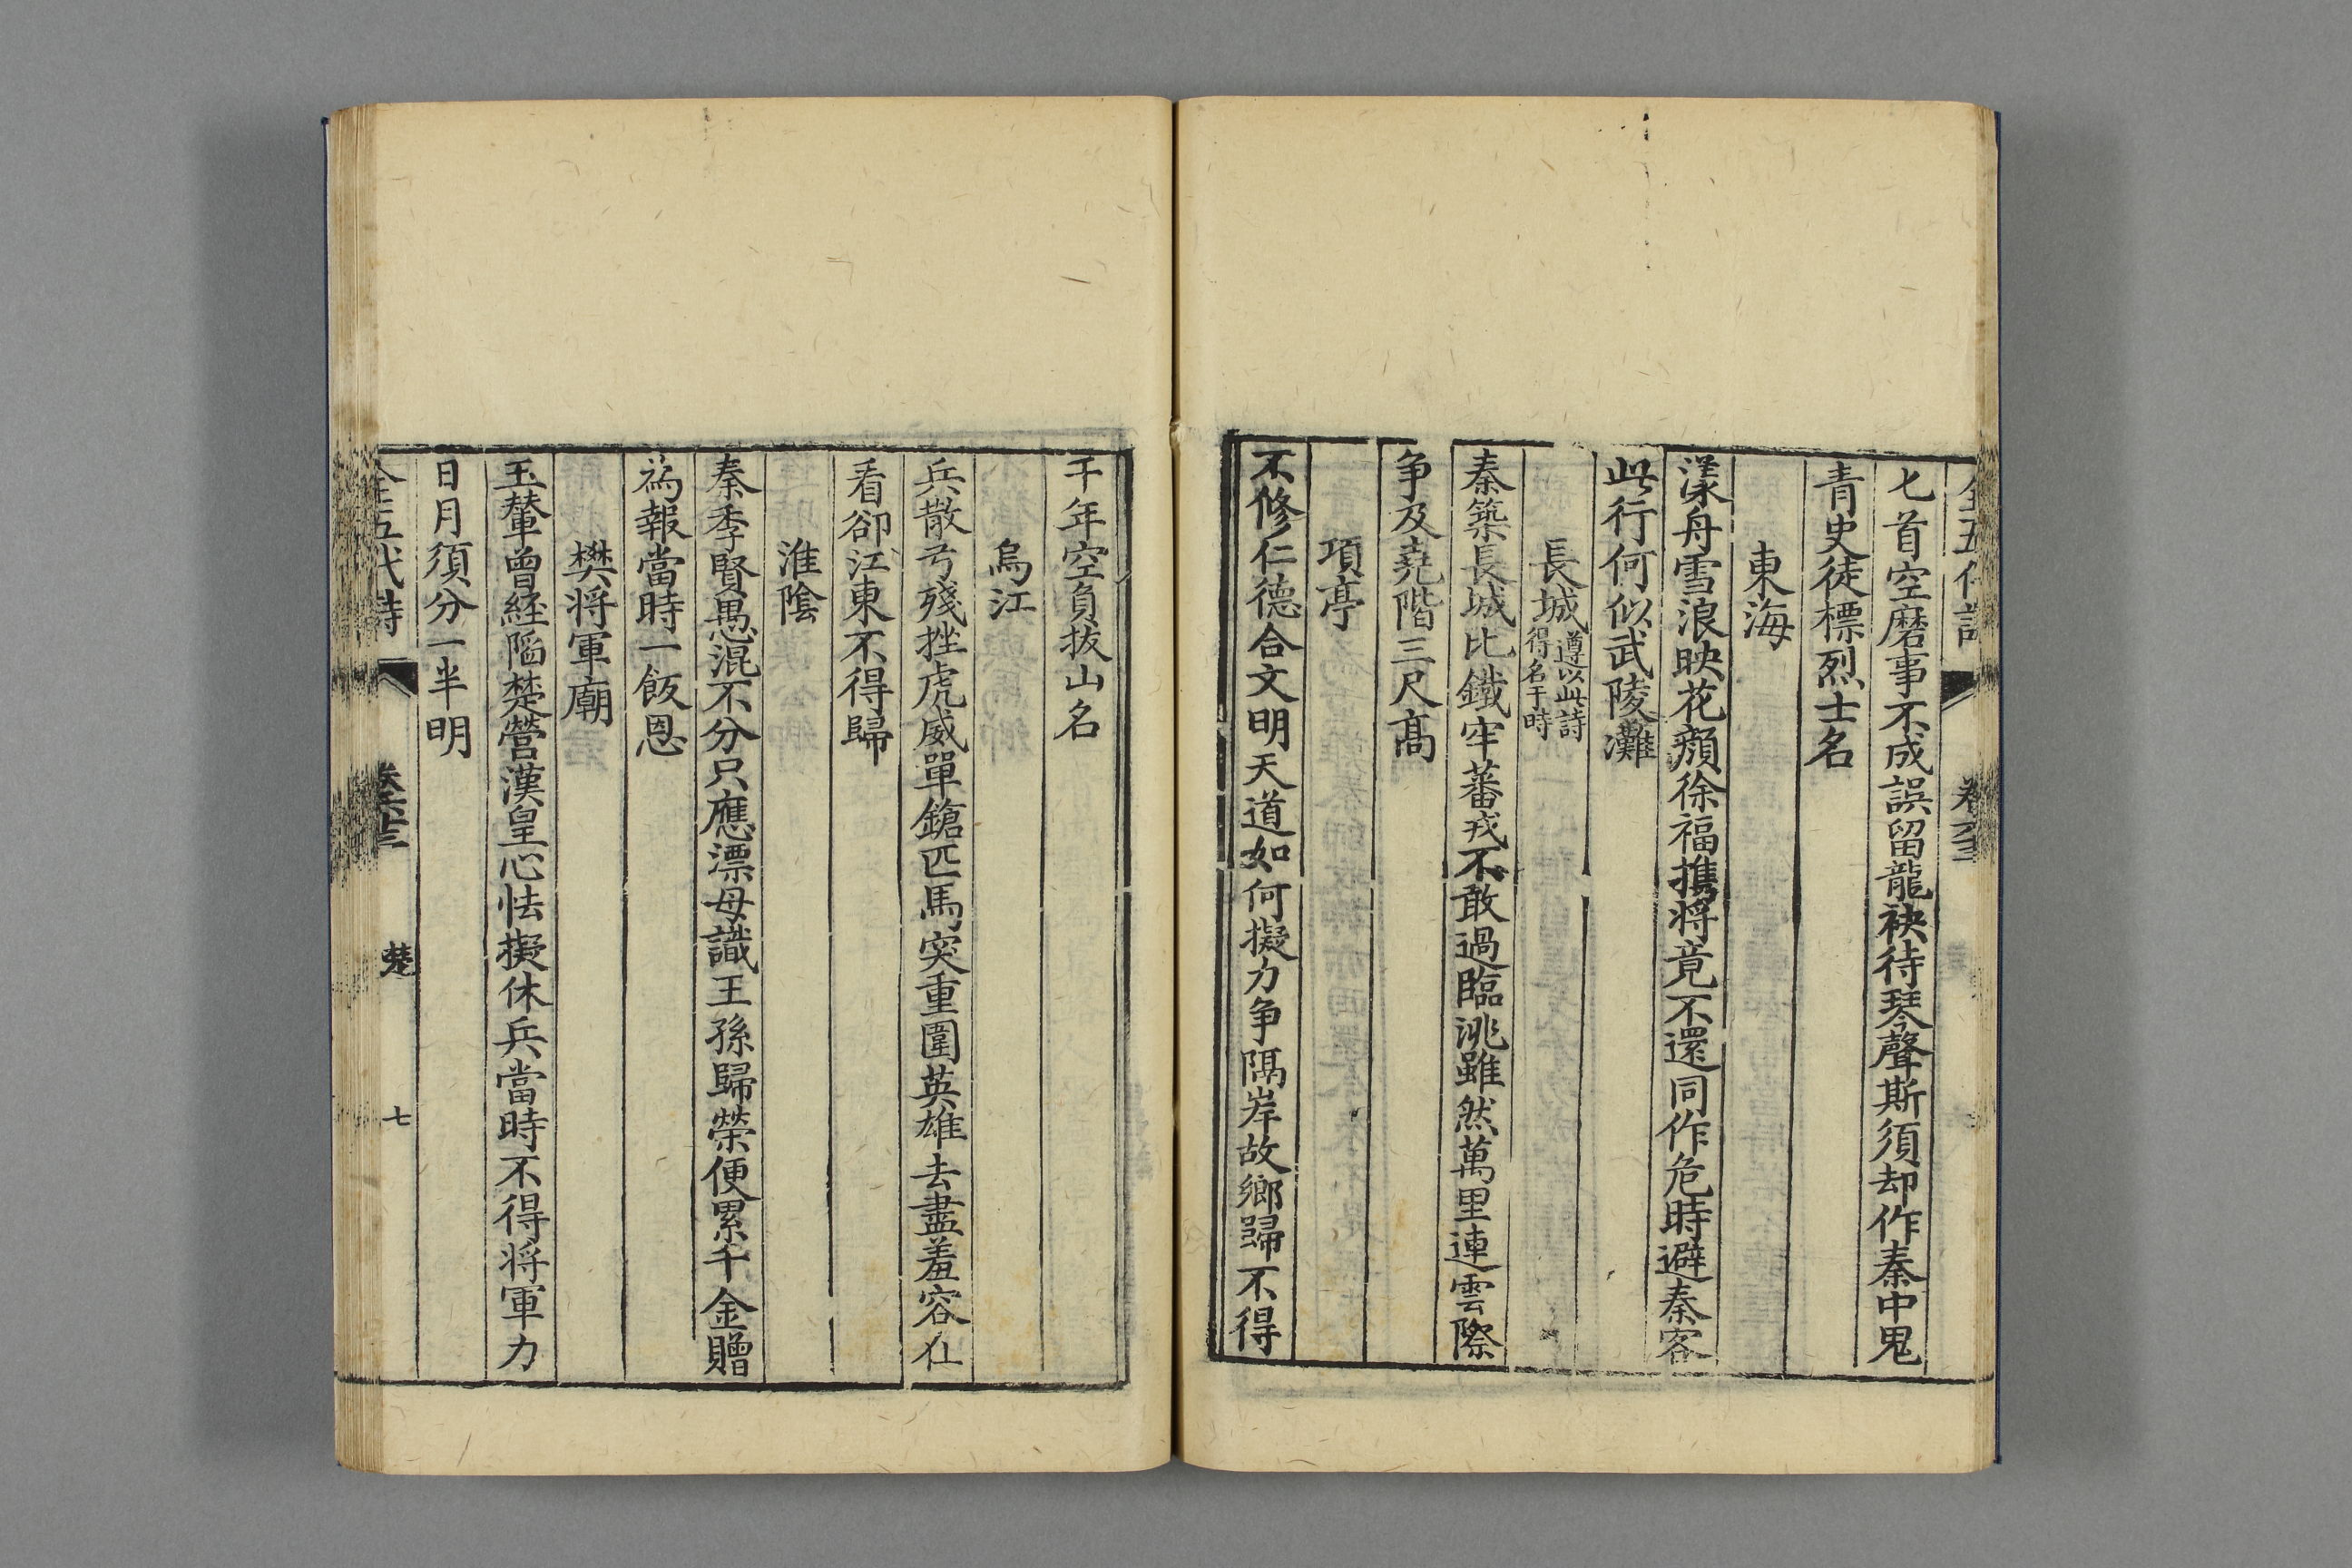 七首空磨事不成誤留龍袂待琴聲斯須却作秦中鬼
青史徒標烈士名
東海
漾舟雪浪映花顔徐福携將竟不還同作危時避秦客
此行何似武陵灘
長城遵以此詩得名于時
秦築長城比鐵牢蕃戎不敢過臨洮雖然萬里連雲際
争及堯階三尺髙
項亭
不修仁德合文明天道如何擬力争隔岸故鄉歸不得
千年空負拔山名
烏江
兵散弓殘挫虎威單鎗匹馬突重圍英雄去盡羞容在
看卻江東不得歸
淮陰
秦季賢愚混不分只應漂母識王孫歸榮便累千金贈
為報當時一飯恩
樊将軍廟
玉輦曾經陷楚營漢皇心怯擬休兵當時不得将軍力
日月須分一半明
全五代詩
楚
七